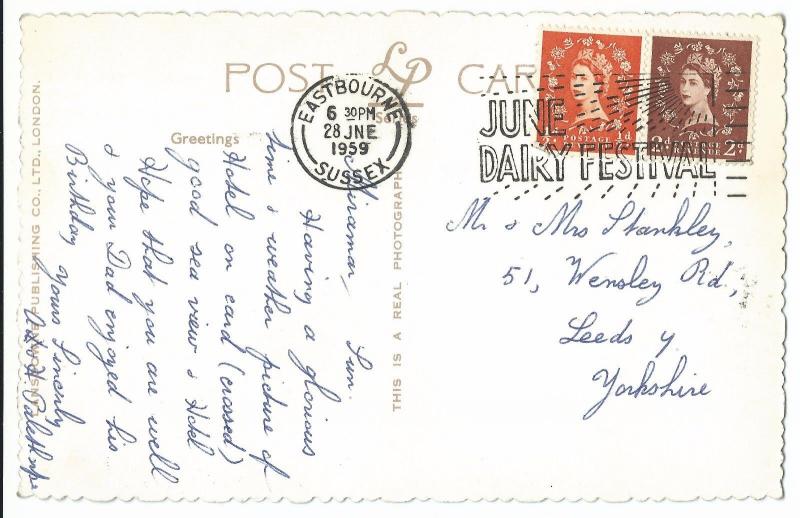 POST CARD
LP
Series
Greetings
EASTBOURNE
6 30PM
28 JNE
1959
SUSSEX
JUNE
DAIRY FESTIVAL
POSTAGE ½d
2d
Miramar,
Sun.
Having a glorious
time & weather picture of
Hotel on card (crossed)
good sea view & Hotel
Hope that you are well
& your Dad enjoyed his
Birthday Yours Sincerly
H. Palethorpe
THIS IS A REAL PHOTOGRAPH
PUBLISHING CO., LTD., LONDON.
Mr & Mrs Stankley,
51, Wensley Rd,
Leeds 7
Yorkshire